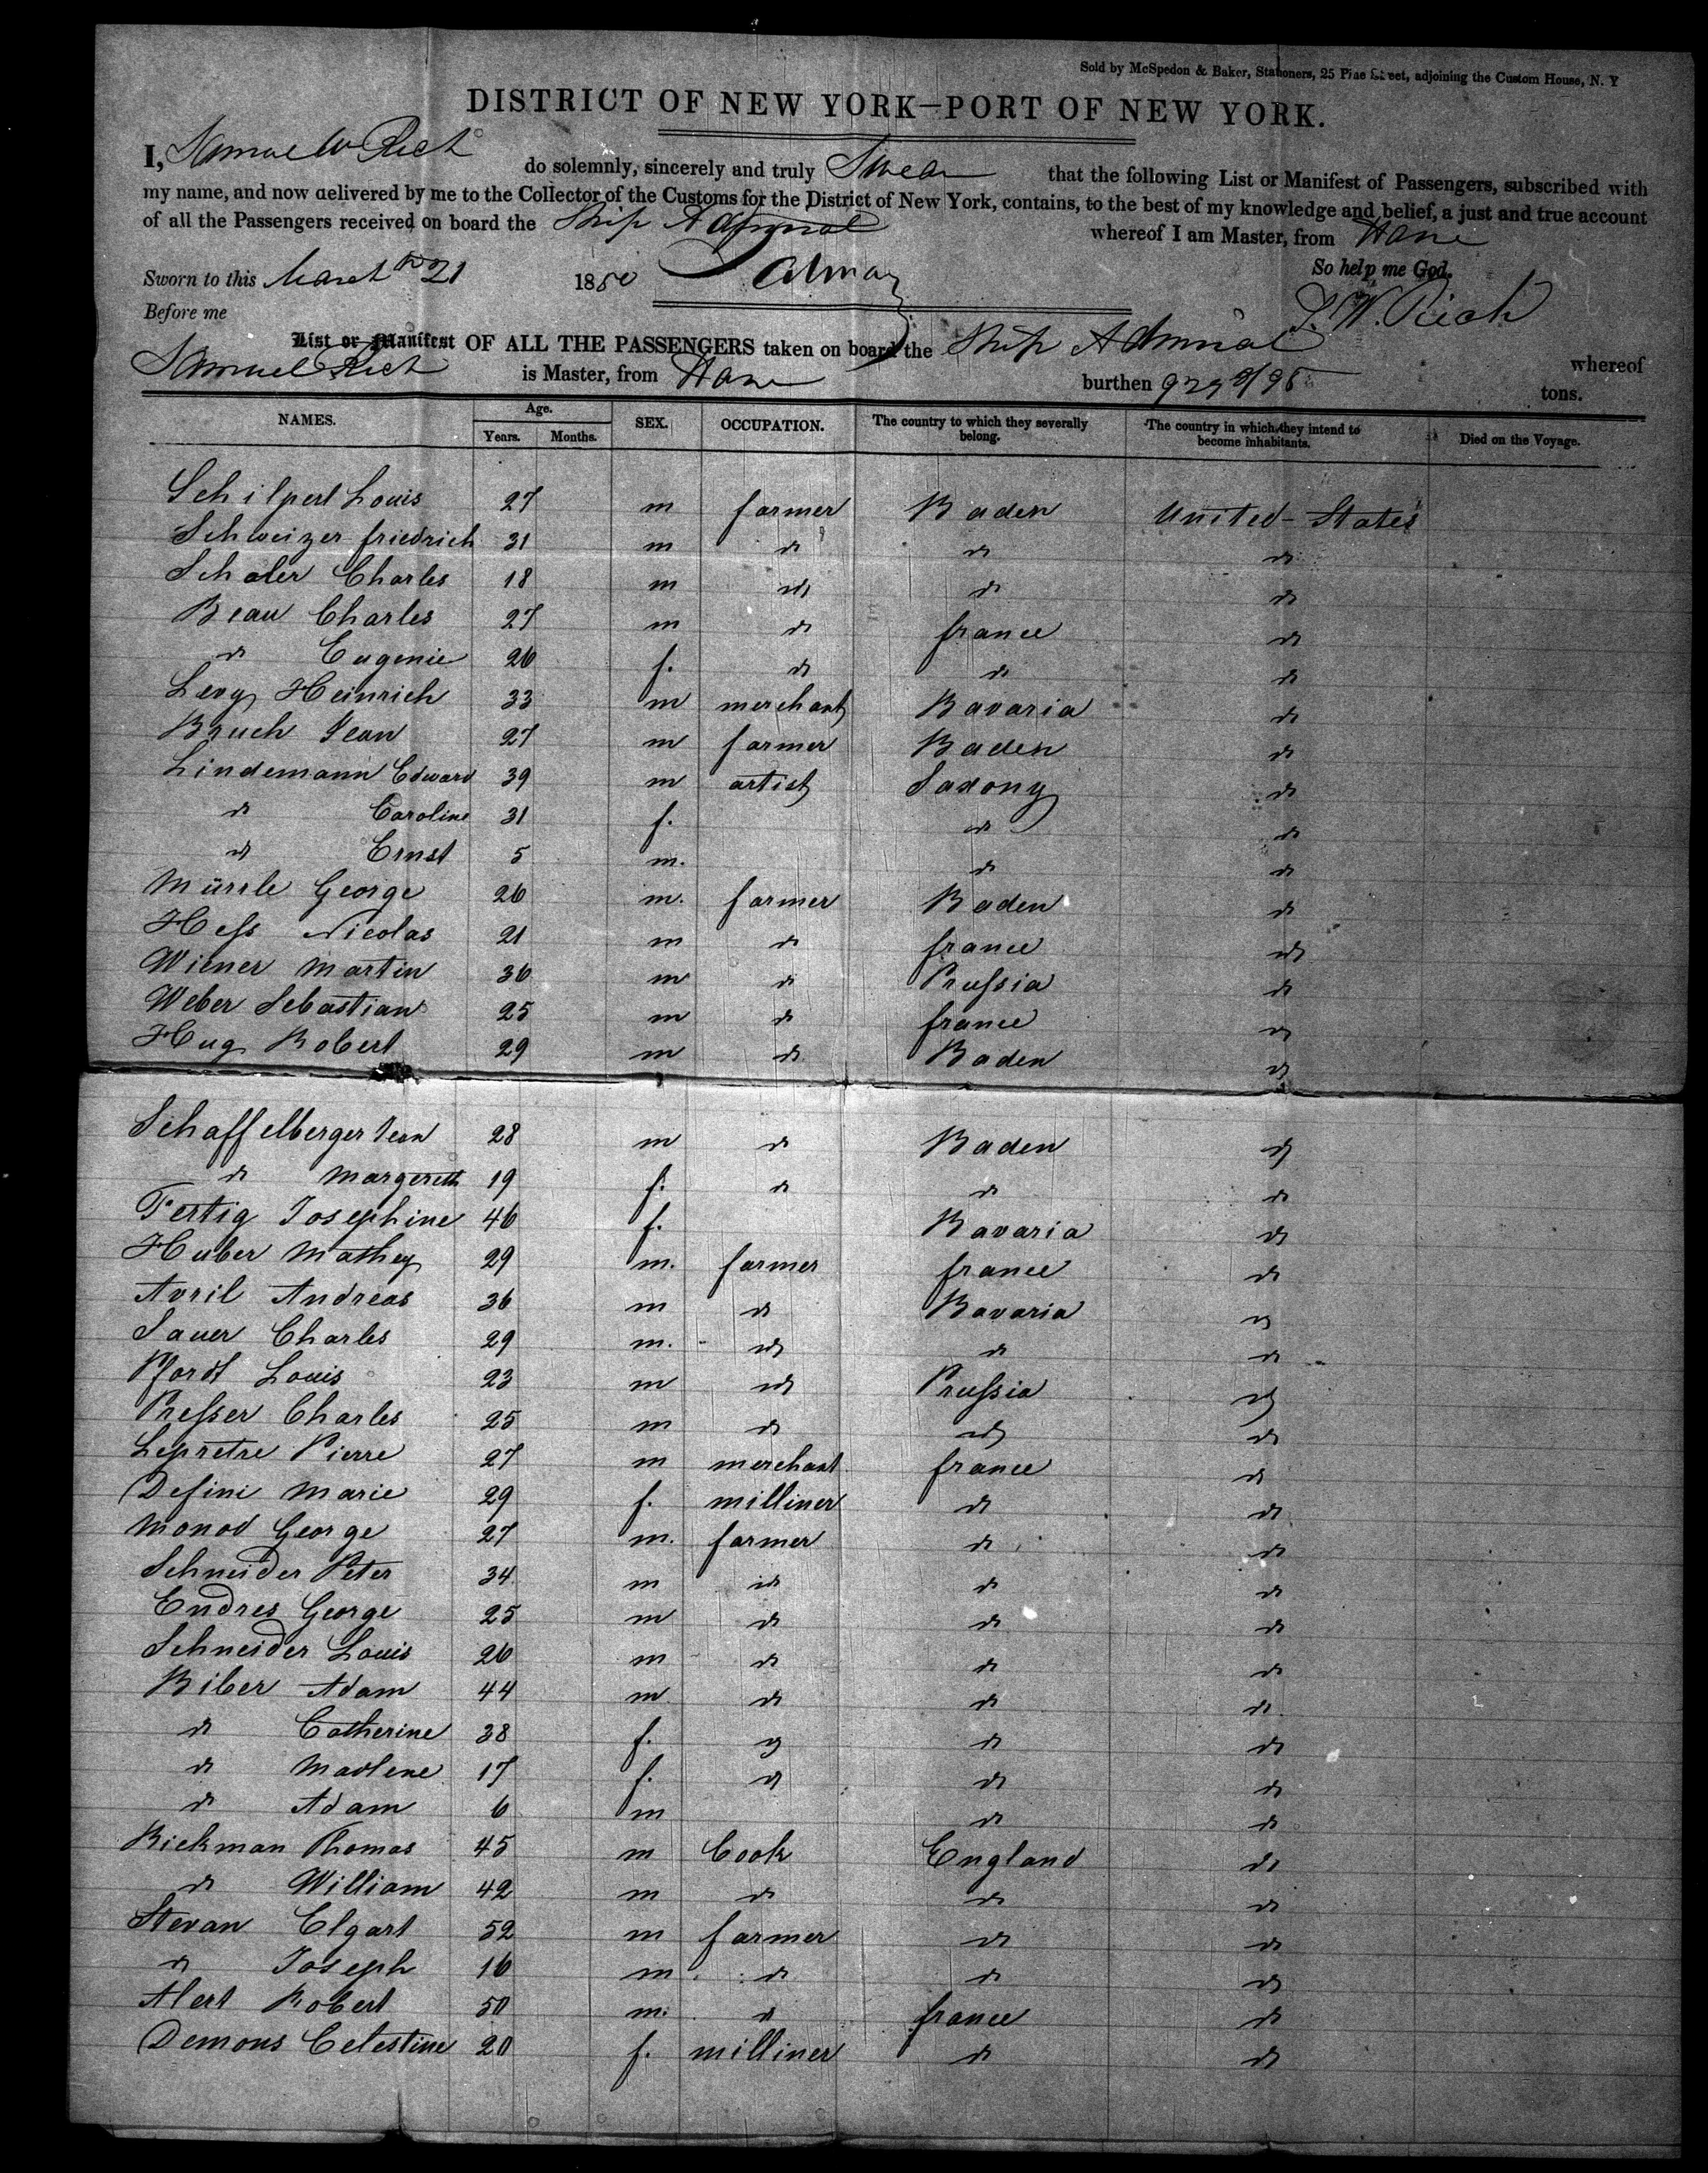 Sold by McSpedon & Baker, Stationers, 25 Pine Street, adjoining the Custom House, N. Y
DISTRICT OF NEW YORK—PORT OF NEW YORK.
I, Samuel W Rich do solemnly, sincerely and truly Swear that the following List or Manifest of Passengers, subscribed with
my name, and now delivered by me to the Collector of the Customs for the District of New York, contains, to the best of my knowledge and belief, a just and true account
of all the Passengers received on board the Ship Admiral whereof I am Master, from Havre
So help me God.
Sworn to this March 21 1850
Before me S. W. Rich
List or Manifest OF ALL THE PASSENGERS taken on board the Ship Admiral whereof
Samuel Rich is Master, from Havre burthen 929 8/95 tons.
NAMES. Age. Years. Months. SEX. OCCUPATION. The country to which they severally belong. The country in which they intend to become inhabitants. Died on the Voyage.
Schilpert Louis 27 m farmer Baden United-States
Schweizer friedrich 31 m do do do
Schaler Charles 18 m do do do
Beau Charles 27 m do france do
do Eugenie 26 f. do do do
Levy Heinrich 33 m merchant Bavaria do
Bruch Jean 27 m farmer Baden do
Lindemann Edward 39 m artist Saxony do
do Caroline 31 f. do do
do Ernst 5 m. do do
Mürrle George 26 m. farmer Baden do
Hess Nicolas 21 m do france do
Wiener Martin 36 m do Prussia do
Weber Sebastian 25 m do france do
Hug Robert 29 m do Baden do
Schaffelberger Jean 28 m do Baden do
do Margereth 19 f. do do do
Fertig Josephine 46 f. Bavaria do
Huber Mathey 29 m. farmer france do
Avril Andreas 36 m do Bavaria do
Sauer Charles 29 m. do do do
Pfordt Louis 23 m do Prussia do
Presser Charles 25 m do do do
Lepretre Pierre 27 m merchant france do
Defini Marie 29 f. milliner do do
Monod George 27 m. farmer do do
Schneider Peter 34 m do do do
Endres George 25 m do do do
Schneider Louis 26 m do do do
Biber Adam 44 m do do do
do Catherine 38 f. do do do
do Madlene 17 f. do do do
do Adam 6 m do do
Rickman Thomas 45 m Cook England do
do William 42 m do do do
Stevan Elgart 52 m farmer do do
do Joseph 16 m. do do do
Alert Robert 50 m. do france do
Demons Celestine 20 f. milliner do do